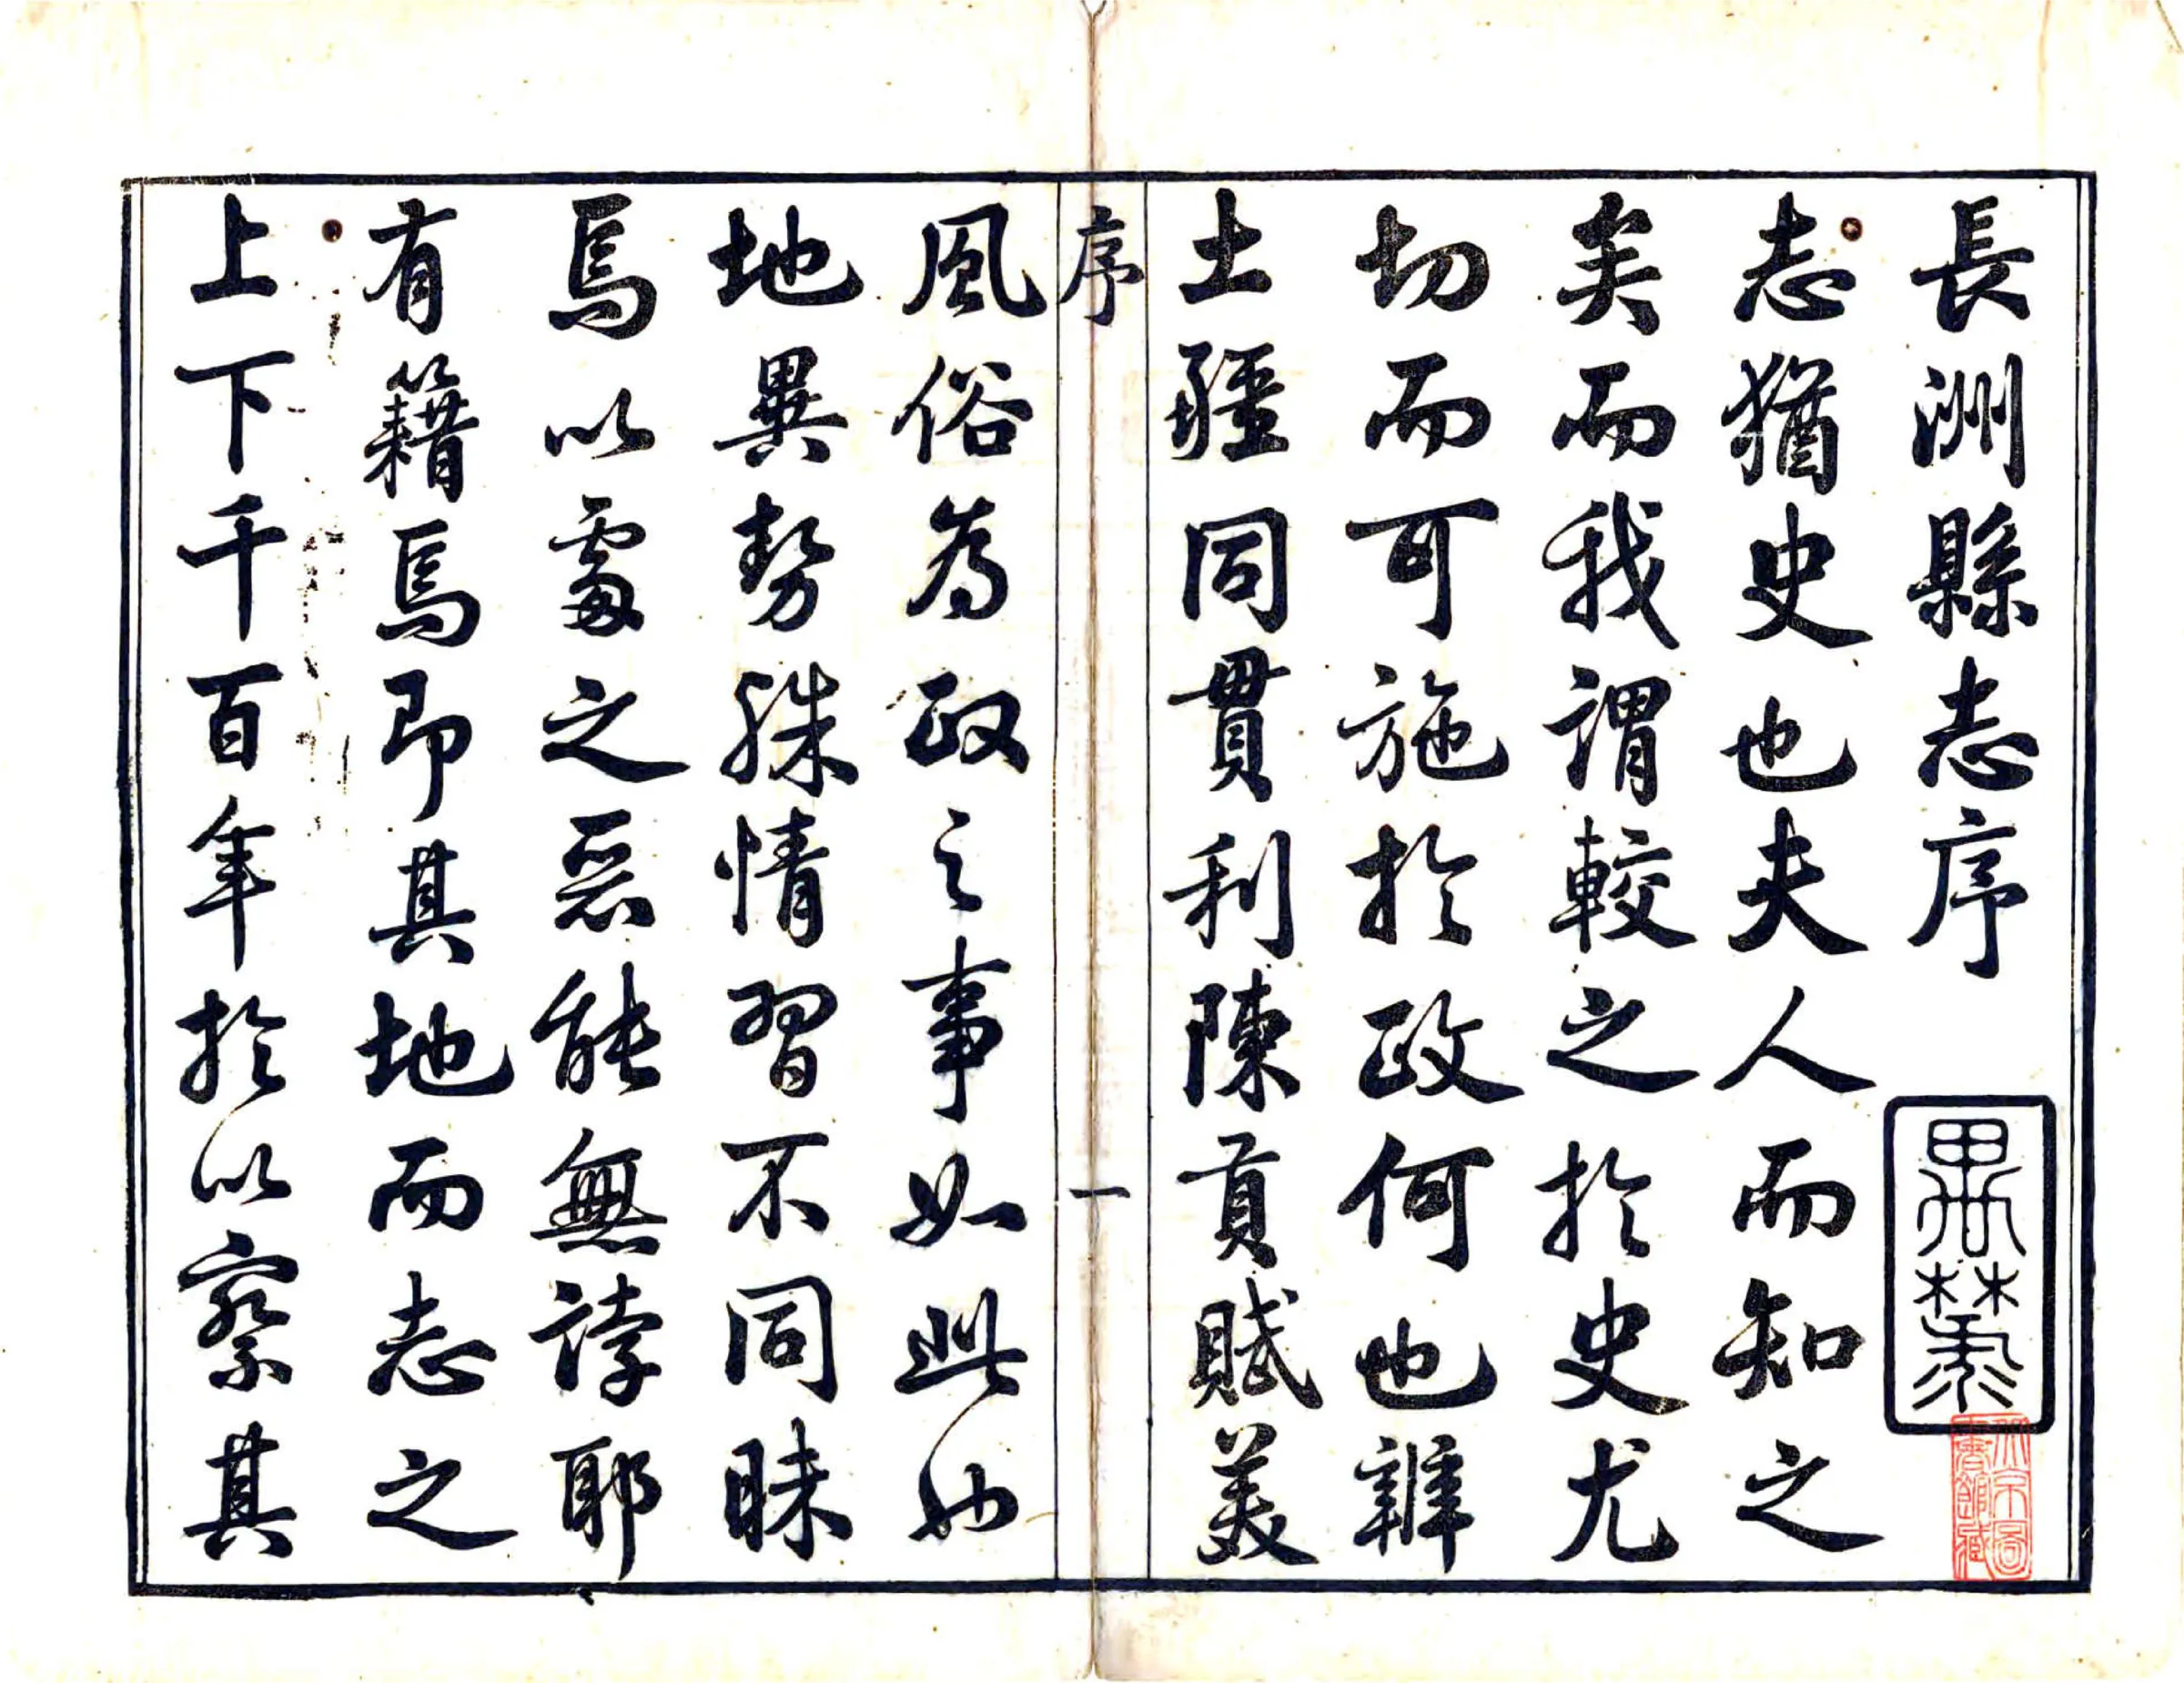 長洲縣志序
志猶史也夫人而知之
矣而我謂較之於史尤
切而可施於政何也辨
土疆同貫利陳貢賦美
序
一
風俗為政之事如此如
地異勢殊情習不同昧
焉以處之惡能無誖耶
有籍焉即其地而志之
上下千百年於以察其